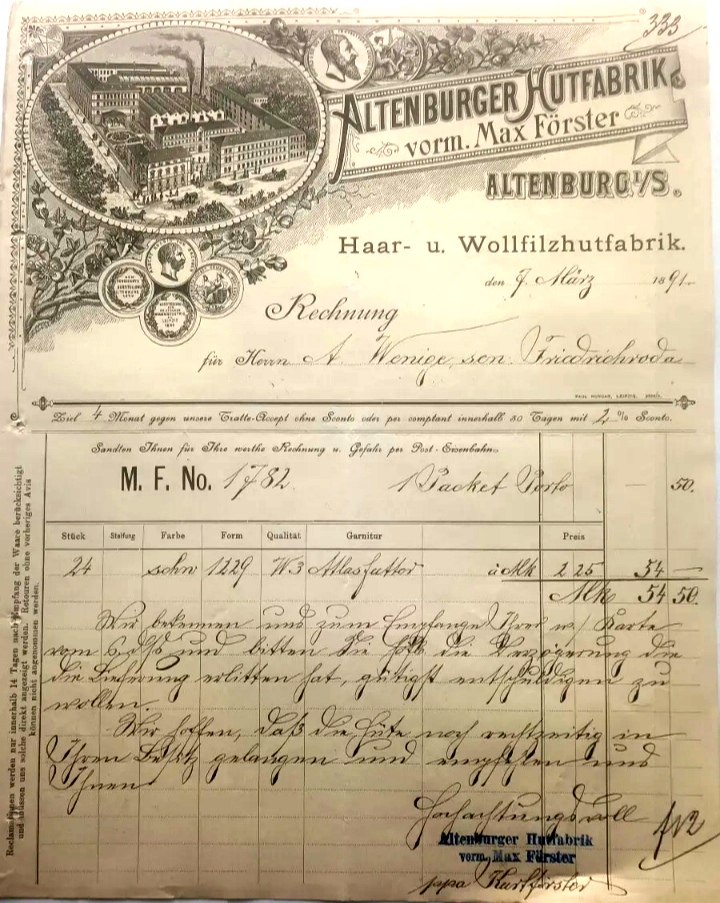 333
ALTENBURGER HUTFABRIK
vorm. Max Förster
ALTENBURG I/S.
Haar- u. Wollfilzhutfabrik.
den 7. März 1891.
Rechnung
für Herrn A. Wenige, sen. Friedrichroda
Ziel 4 Monat gegen unsere Tratte-Accept ohne Sconto oder per comptant innerhalb 30 Tagen mit 2 % Sconto.
Sandten Ihnen für Ihre werthe Rechnung u. Gefahr per Post-Eisenbahn
M. F. No. 1782. 1 Packet Porto — 50.
Stück Steifung Farbe Form Qualität Garnitur Preis
24 schw 1229 W3 Atlasfutter à Mk 2 25 54 —
Mk 54 50.
Wir bekennen uns zum Empfange Ihrer w. Karte
vom 6. dss und bitten Sie höfl. die Verzögerung die
die Lieferung erlitten hat, gütigst entschuldigen zu
wollen.
Wir hoffen, daß die Hüte noch rechtzeitig in
Ihren Besitz gelangen und empfehlen uns
Ihnen
Hochachtungsvoll
Altenburger Hutfabrik
vorm. Max Förster
ppa Kurt Förster
Reclamationen werden nur innerhalb 14 Tagen nach Empfang der Waare berücksichtigt
und müssen uns solche direkt angezeigt werden. Retouren ohne vorheriges Avis
können nicht angenommen werden.